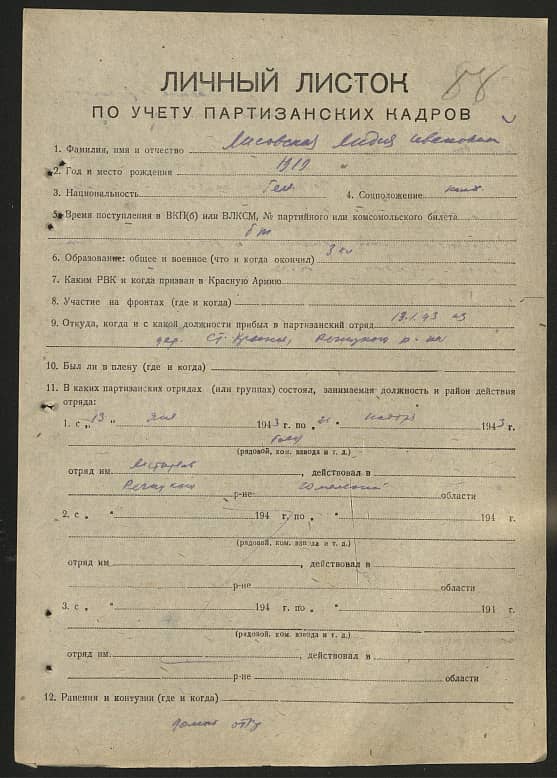 88
ЛИЧНЫЙ ЛИСТОК
ПО УЧЕТУ ПАРТИЗАНСКИХ КАДРОВ
1. Фамилия, имя и отчество Лисовская Лидия Ивановна
2. Год и место рождения 1919 "
3. Национальность бел 4. Соцположение
5. Время поступления в ВКП(б) или ВЛКСМ, № партийного или комсомольского билета
б/п
6. Образование: общее и военное (что и когда окончил) 3 кл
7. Каким РВК и когда призван в Красную Армию
8. Участие на фронтах (где и когда)
9. Откуда, когда и с какой должности прибыл в партизанский отряд 13.1.43 из
дер. Ст. Красное, Речицкого р-на
10. Был ли в плену (где и когда)
11. В каких партизанских отрядах (или группах) состоял, занимаемая должность и район действия
отряда:
1. с „ 13 " янв 1943 г. по „ 21 " ноябр 1943 г.
(рядовой, ком. взвода и т. д.)
отряд им. , действовал в
Речицкий р-не Гомельской области
2. с „ " 194 г. по „ " 194 г.
(рядовой, ком. взвода и т. д.)
отряд им , действовал в
р-не области
3. с „ " 194 г. по „ " 191 г.
(рядовой, ком. взвода и т. д.)
отряд им. , действовал в
р-не области
12. Ранения и контузии (где и когда)